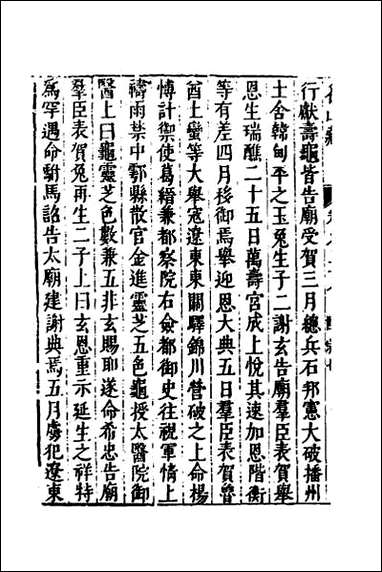 行獻壽龜皆告廟受賀三月總兵石邦憲大破播州
土舍韓甸平之玉兔生子二謝玄告廟羣臣表賀舉
恩生瑞醮二十五日萬壽宮成上悅其速加恩階銜
等有差四月移御焉舉迎恩大典五日羣臣表賀曾
酋土蠻等大舉寇遼東東關驛錦川營破之上命楊
博計禦使葛縉兼都察院右僉都御史往視軍情上
禱雨禁中鄠縣散官金進靈芝五色龜授太醫院御
醫上曰龜靈芝色數兼五非玄賜耶遂命希忠告廟
羣臣表賀兔再生二子上曰玄恩重示延生之祥特
爲罕遇命駙馬詣告太廟建謝典焉五月虜犯遼東